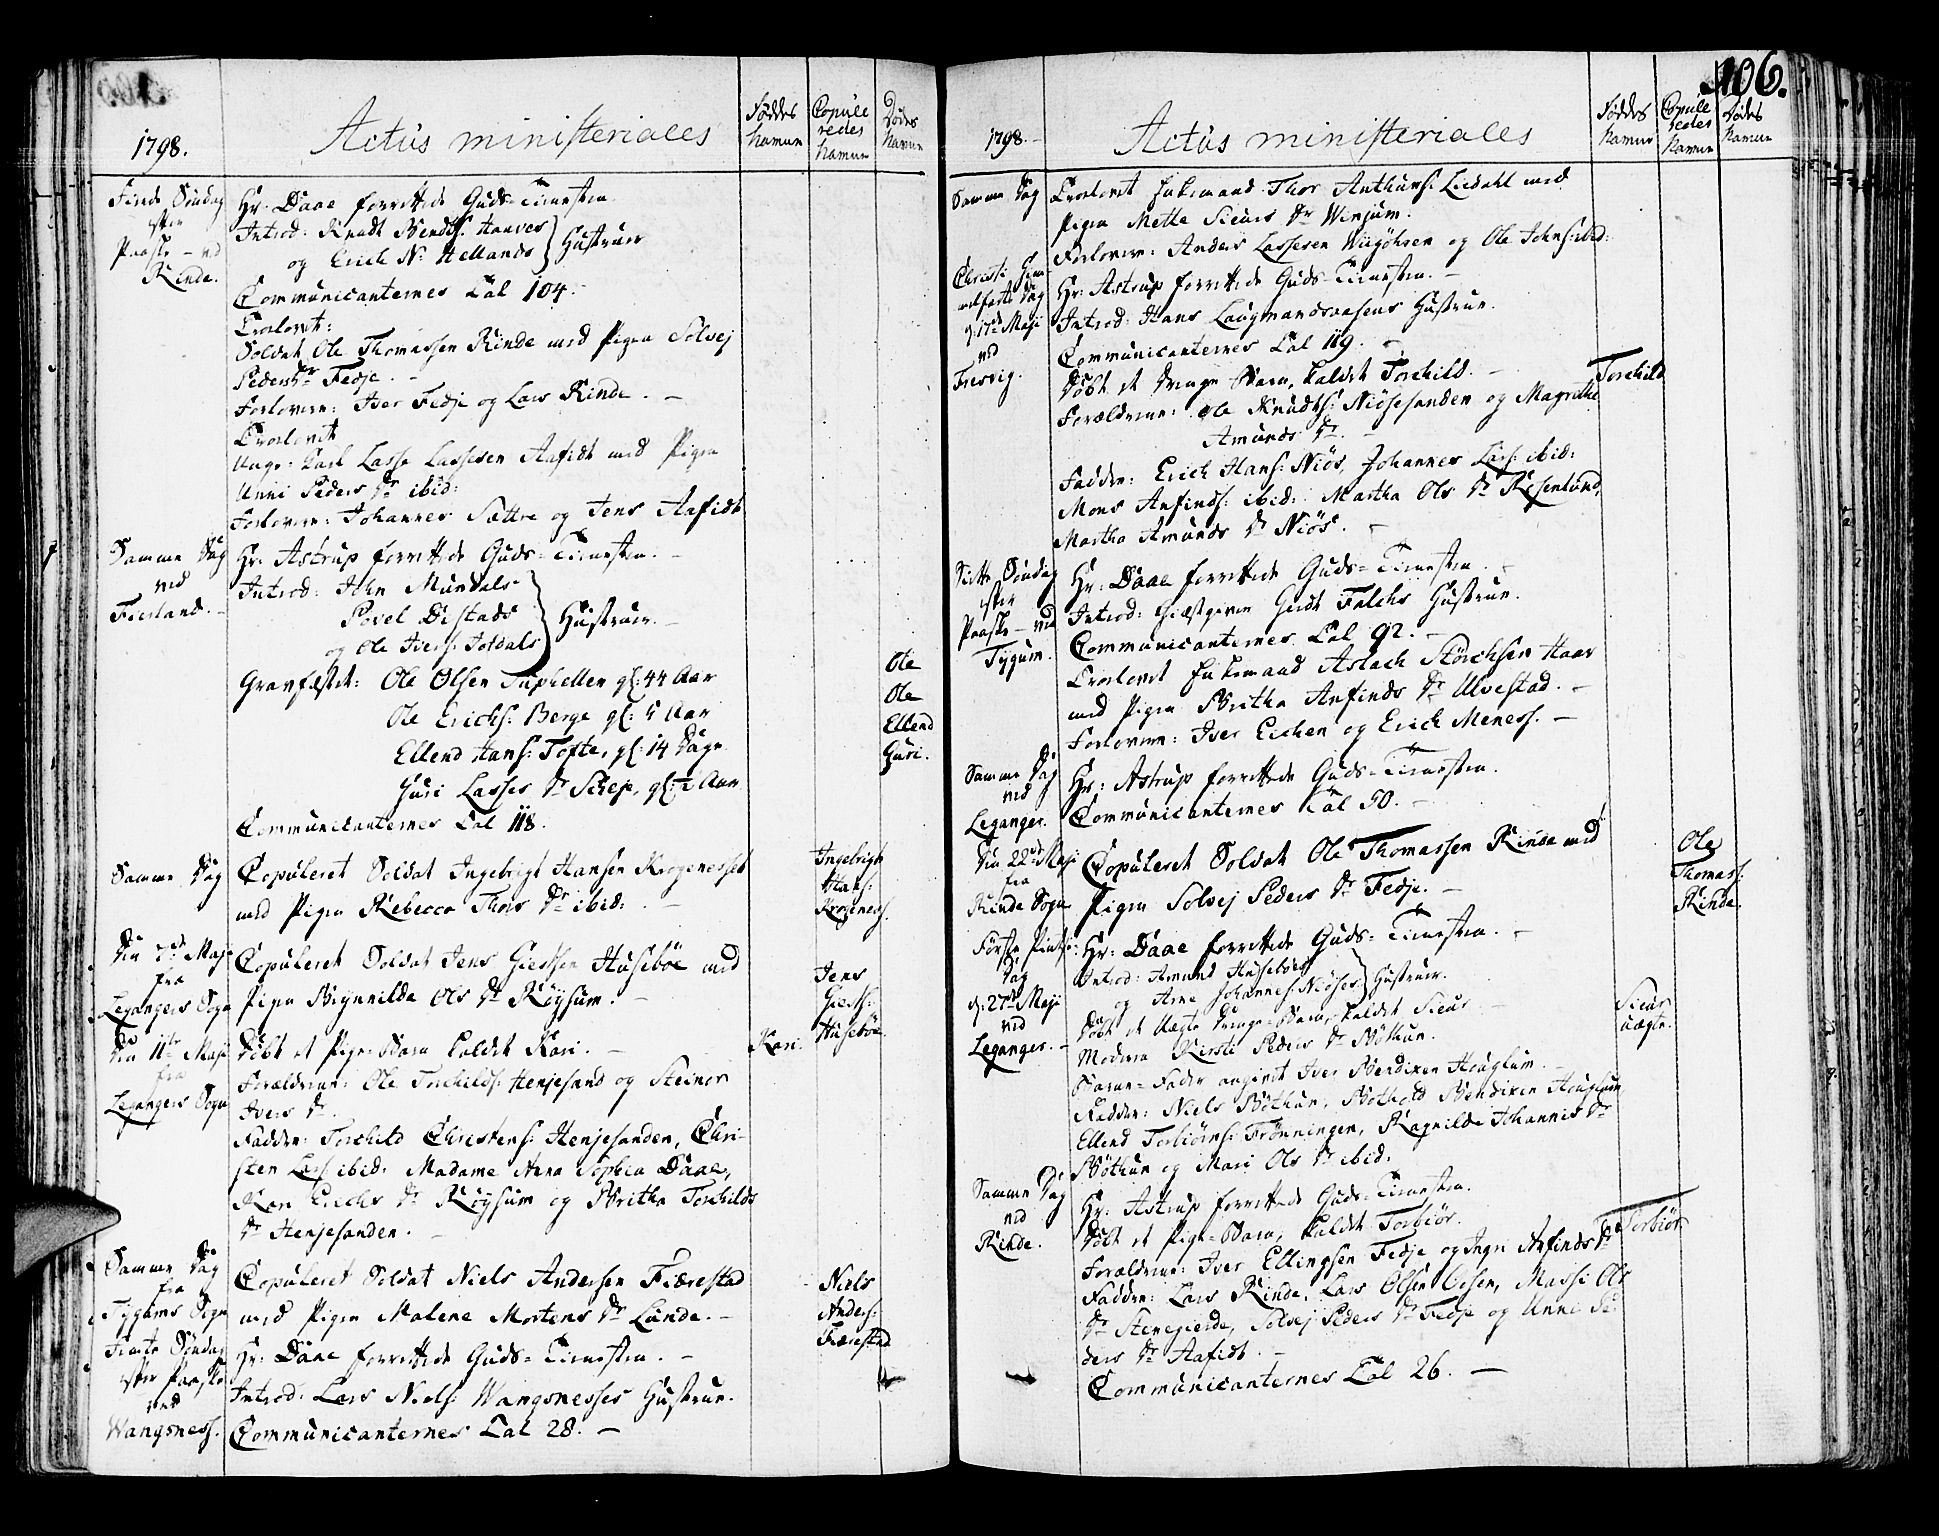 1798.
Actus ministeriales
Føddes Navne
Copuleredes Navne
Dødes Navne
Fierde Søndag
efter
Paaske - ved
Rinde.
Hr. Daae forrettede Guds-Tienesten.
Introd: Knudt Bendts: Haaves
og Erich N: Hellands } Hustruer
Communicanternes Tal 104.
Trolovet:
Soldat Ole Thomassen Rinde med Pigen Solvej
Peders Dr Fedje. -
Forlovere: Iver Fedje og Lars Rinde. -
Trolovet
Unge: Karl Lasse Lassesen Aafidt med Pigen
Unni Peders Dr ibid:
Forlovere: Johannes Sættre og Jens Aafidt
Samme Dag
ved
Fierland. -
Hr. Astrup forrettede Guds-Tienesten. -
Introd: John Mundals
Povel Distads
og Ole Ivers: Jotdals } Hustruer. -
Gravfæstet: Ole Olsen Suphellen gl: 44 Aar
Ole Erichs: Berge gl: 5 Aar
Ellend Hans: Tofte, gl: 14 Dage
Guri Lasses Dr , gl: ½ Aar
Ole
Ole
Ellend
Guri.
Communicanternes Tal 118.
Samme Dag
Copuleret Soldat Ingebrigt Hansen Krogenesset
med Pigen Rebecca Thors Dr ibid: -
Ingebrigt
Hans:
Krogeness.
Den 7de Maji
fra
Legangers Sogn
Copuleret Soldat Jens Giertsen Husebøe med
Pigen Brynnilde Ols Dr Røysum. -
Jens
Gierts:
Husebøe
Den 11te Maji
fra
Legangers Sogn
Døbt et Pige-Barn kaldet Kari. -
Kari.
Forældrene: Ole Torchilds: Henjesand og Steinor
Ivers Dr.
Faddere: Torchild Christens: Henjesanden, Chri-
sten Lars: ibid: Madame Anna Sophia Daae,
Kari Erichs Dr Røysum og Britha Torchilds
Dr Henjesanden. -
Samme Dag
fra
Tygums Sogn
Copuleret Soldat Niels Andersen Fiærestad
med Pigen Malene Mortens Dr Lunde. -
Niels
Anders:
Fiærestad
Femte Søndag
efter Paaske
ved
Wangsness.
Hr. Daae forrettede Guds-Tienesten. -
Introd: Lars Niels: Wangsnesses Hustrue.
Communicanternes Tal 28. -
106.
1798.
Actus ministeriales
Føddes Navne
Copuleredes Navne
Dødes Navne
Samme Dag
Trolovet Enkemand Thor Anthuns: Liedahl med
Pigen Mette Siurs Dr Winjum.
Forlovere: Anders Lassesen Wiigøhren og Ole Johns: ibid:
Christi Him-
melfarts Dag
d: 17de Maji
ved
Fresvig.
Hr: Astrup forrettede Guds-Tienesten. -
Introd: Hans Laugmandsaasens Hustrue.
Communicanternes Tal 119. -
Døbt et Drenge Barn, kaldet Torchild. -
Torchild
Forældrene: Ole Knudts: Niøsesanden og Magrethe
Amunds Dr. -
Faddere: Erich Hans: Niøs, Johannes Lars: ibid:
Mons Anfinds: ibid: Martha Ols Dr Resenlund,
Martha Amunds Dr Niøs. -
Siette Søndag
efter
Paaske - ved
Tygum.
Hr: Daae forrettede Guds-Tienesten. -
Introd: Giestgiver Gerdt Falchs Hustrue.
Communicanternes Tal 92. -
Trolovet Enkemand Aslach Størchsen Haar
med Pigen Britha Anfinds Dr Ulvestad. -
Forlovere: Iver Eichen og Erich Meness. -
Samme Dag
ved
Leganger.
Hr: Astrup forrettede Guds-Tienesten.
Communicanternes Tal 50. -
Den 22de Maji
fra
Rinde Sogn
Copuleret Soldat Ole Thomassen Rinde med
Pigen Solvej Peders Dr Fedje. -
Ole
Thomas:
Rinde.
Første Pintse-
Dag
d: 27de Maji
ved
Leganger. -
Hr: Daae forrettede Guds-Tienesten. -
Introd: Amund Husebøes
og Arne Johannes: Niøses } Hustruer.
Døbt et Uægte Drenge-Barn, kaldet Siur
Siur
uægte.
Moderen Kirsti Peders Dr Bøthun.
Barne-Fader angivet Iver Bendixen Houglum. -
Faddere: Niels Bøthun, Bothold Bendixen Houglum
Ellend Torbiørns: Frønningen, Ragnilde Johannis Dr
Bøthun og Mari Ols Dr ibid:
Samme Dag
ved
Rinde.
Hr: Astrup forrettede Guds-Tienesten.
Døbt et Pige-Barn, kaldet Torbiør.
Torbiør
Forældrene: Iver Ellingsen Fedje og Ingri Anfinds Dr
Faddere: Lars Rinde, Lars Olsen Eesen, Massi Ols
Dr Stenegierde, Solvej Peders Dr Fedje og Unni Pe-
ders Dr Aafidt. -
Communicanternes Tal 26. -